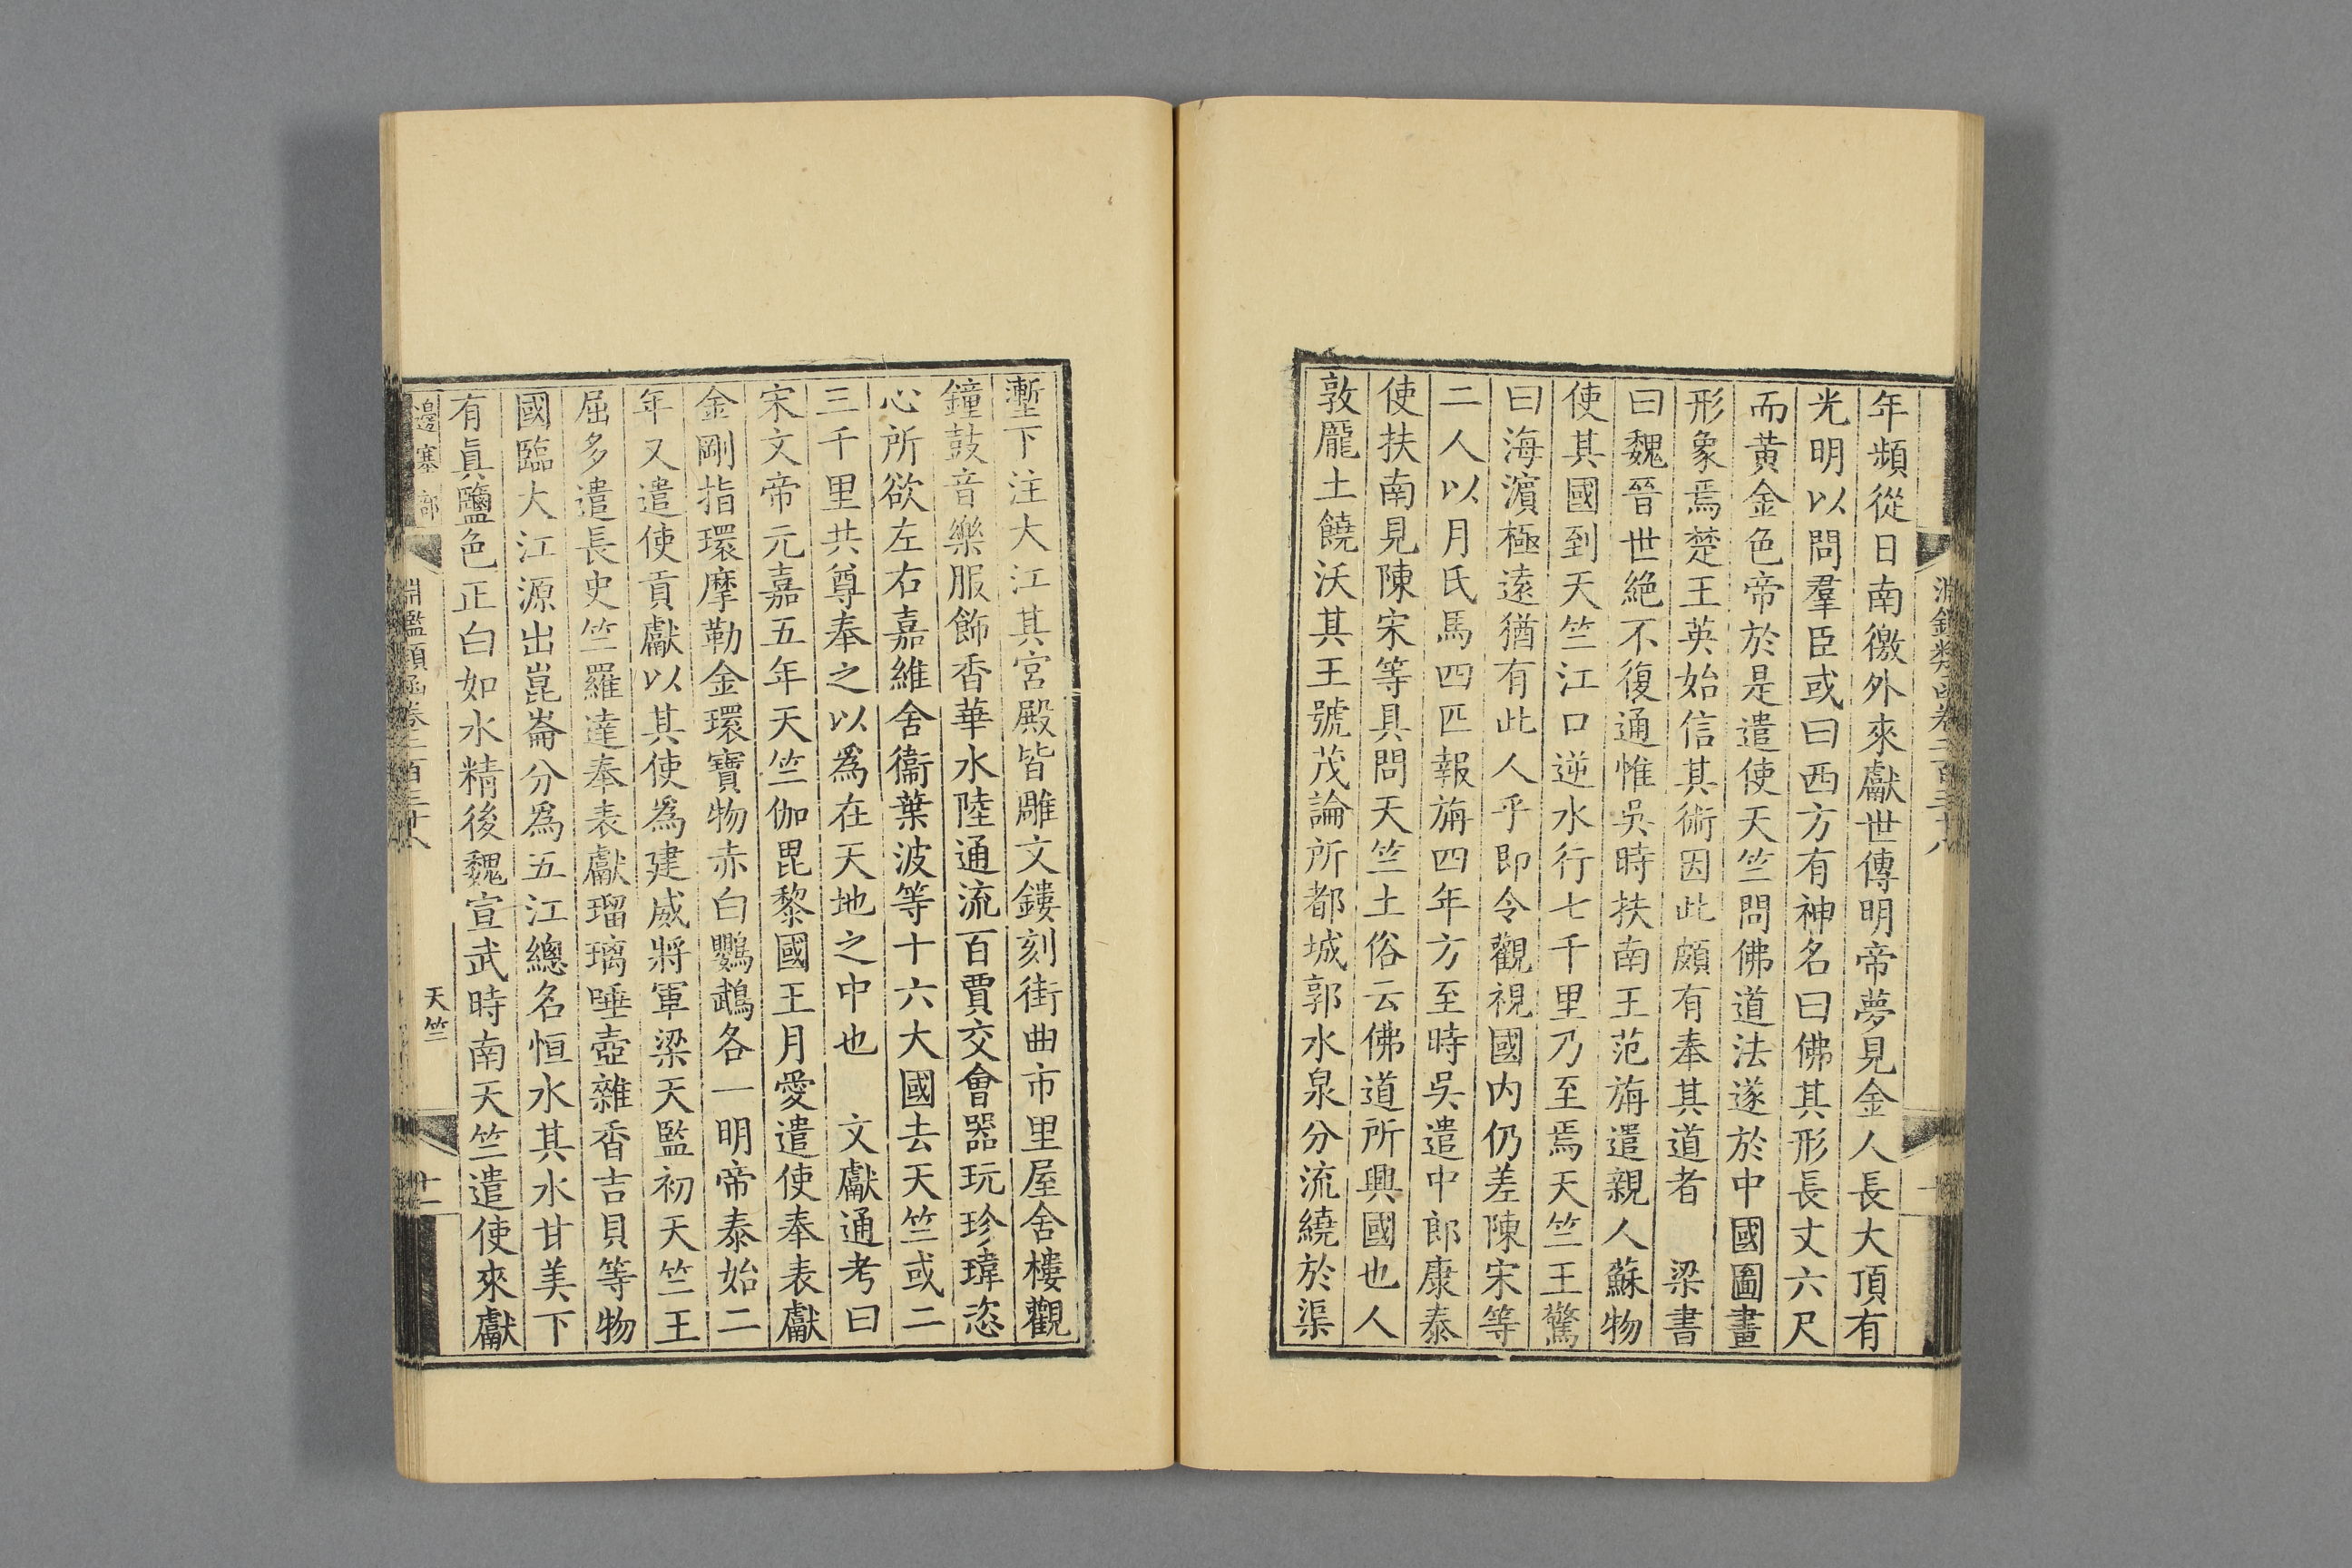 年頻從日南徼外來獻世傳明帝夢見金人長大頂有
光明以問羣臣或曰西方有神名曰佛其形長丈六尺
而黃金色帝於是遣使天竺問佛道法遂於中國圖畫
形象焉楚王英始信其術因此頗有奉其道者　梁書
曰魏晉世絶不復通惟吳時扶南王范旃遣親人蘇物
使其國到天竺江口逆水行七千里乃至焉天竺王驚
曰海濵極遠猶有此人乎即令觀視國内仍差陳宋等
二人以月氏馬四匹報旃四年方至時吳遣中郎康泰
使扶南見陳宋等具問天竺土俗云佛道所興國也人
敦厖土饒沃其王號茂論所都城郭水泉分流繞於渠
塹下注大江其宮殿皆雕文鏤刻街曲市里屋舍樓觀
鐘鼓音樂服飾香華水陸通流百賈交會器玩珍瑋恣
心所欲左右嘉維舍衞葉波等十六大國去天竺或二
三千里共尊奉之以爲在天地之中也　文獻通考曰
宋文帝元嘉五年天竺伽毘黎國王月愛遣使奉表獻
金剛指環摩勒金環寶物赤白鸚鵡各一明帝泰始二
年又遣使貢獻以其使爲建威將軍梁天監初天竺王
屈多遣長史竺羅達奉表獻瑠璃唾壺雜香吉貝等物
國臨大江源出崑崙分爲五江總名恒水其水甘美下
有眞鹽色正白如水精後魏宣武時南天竺遣使來獻
邊塞部
淵鑑類函卷二百三十八
天竺